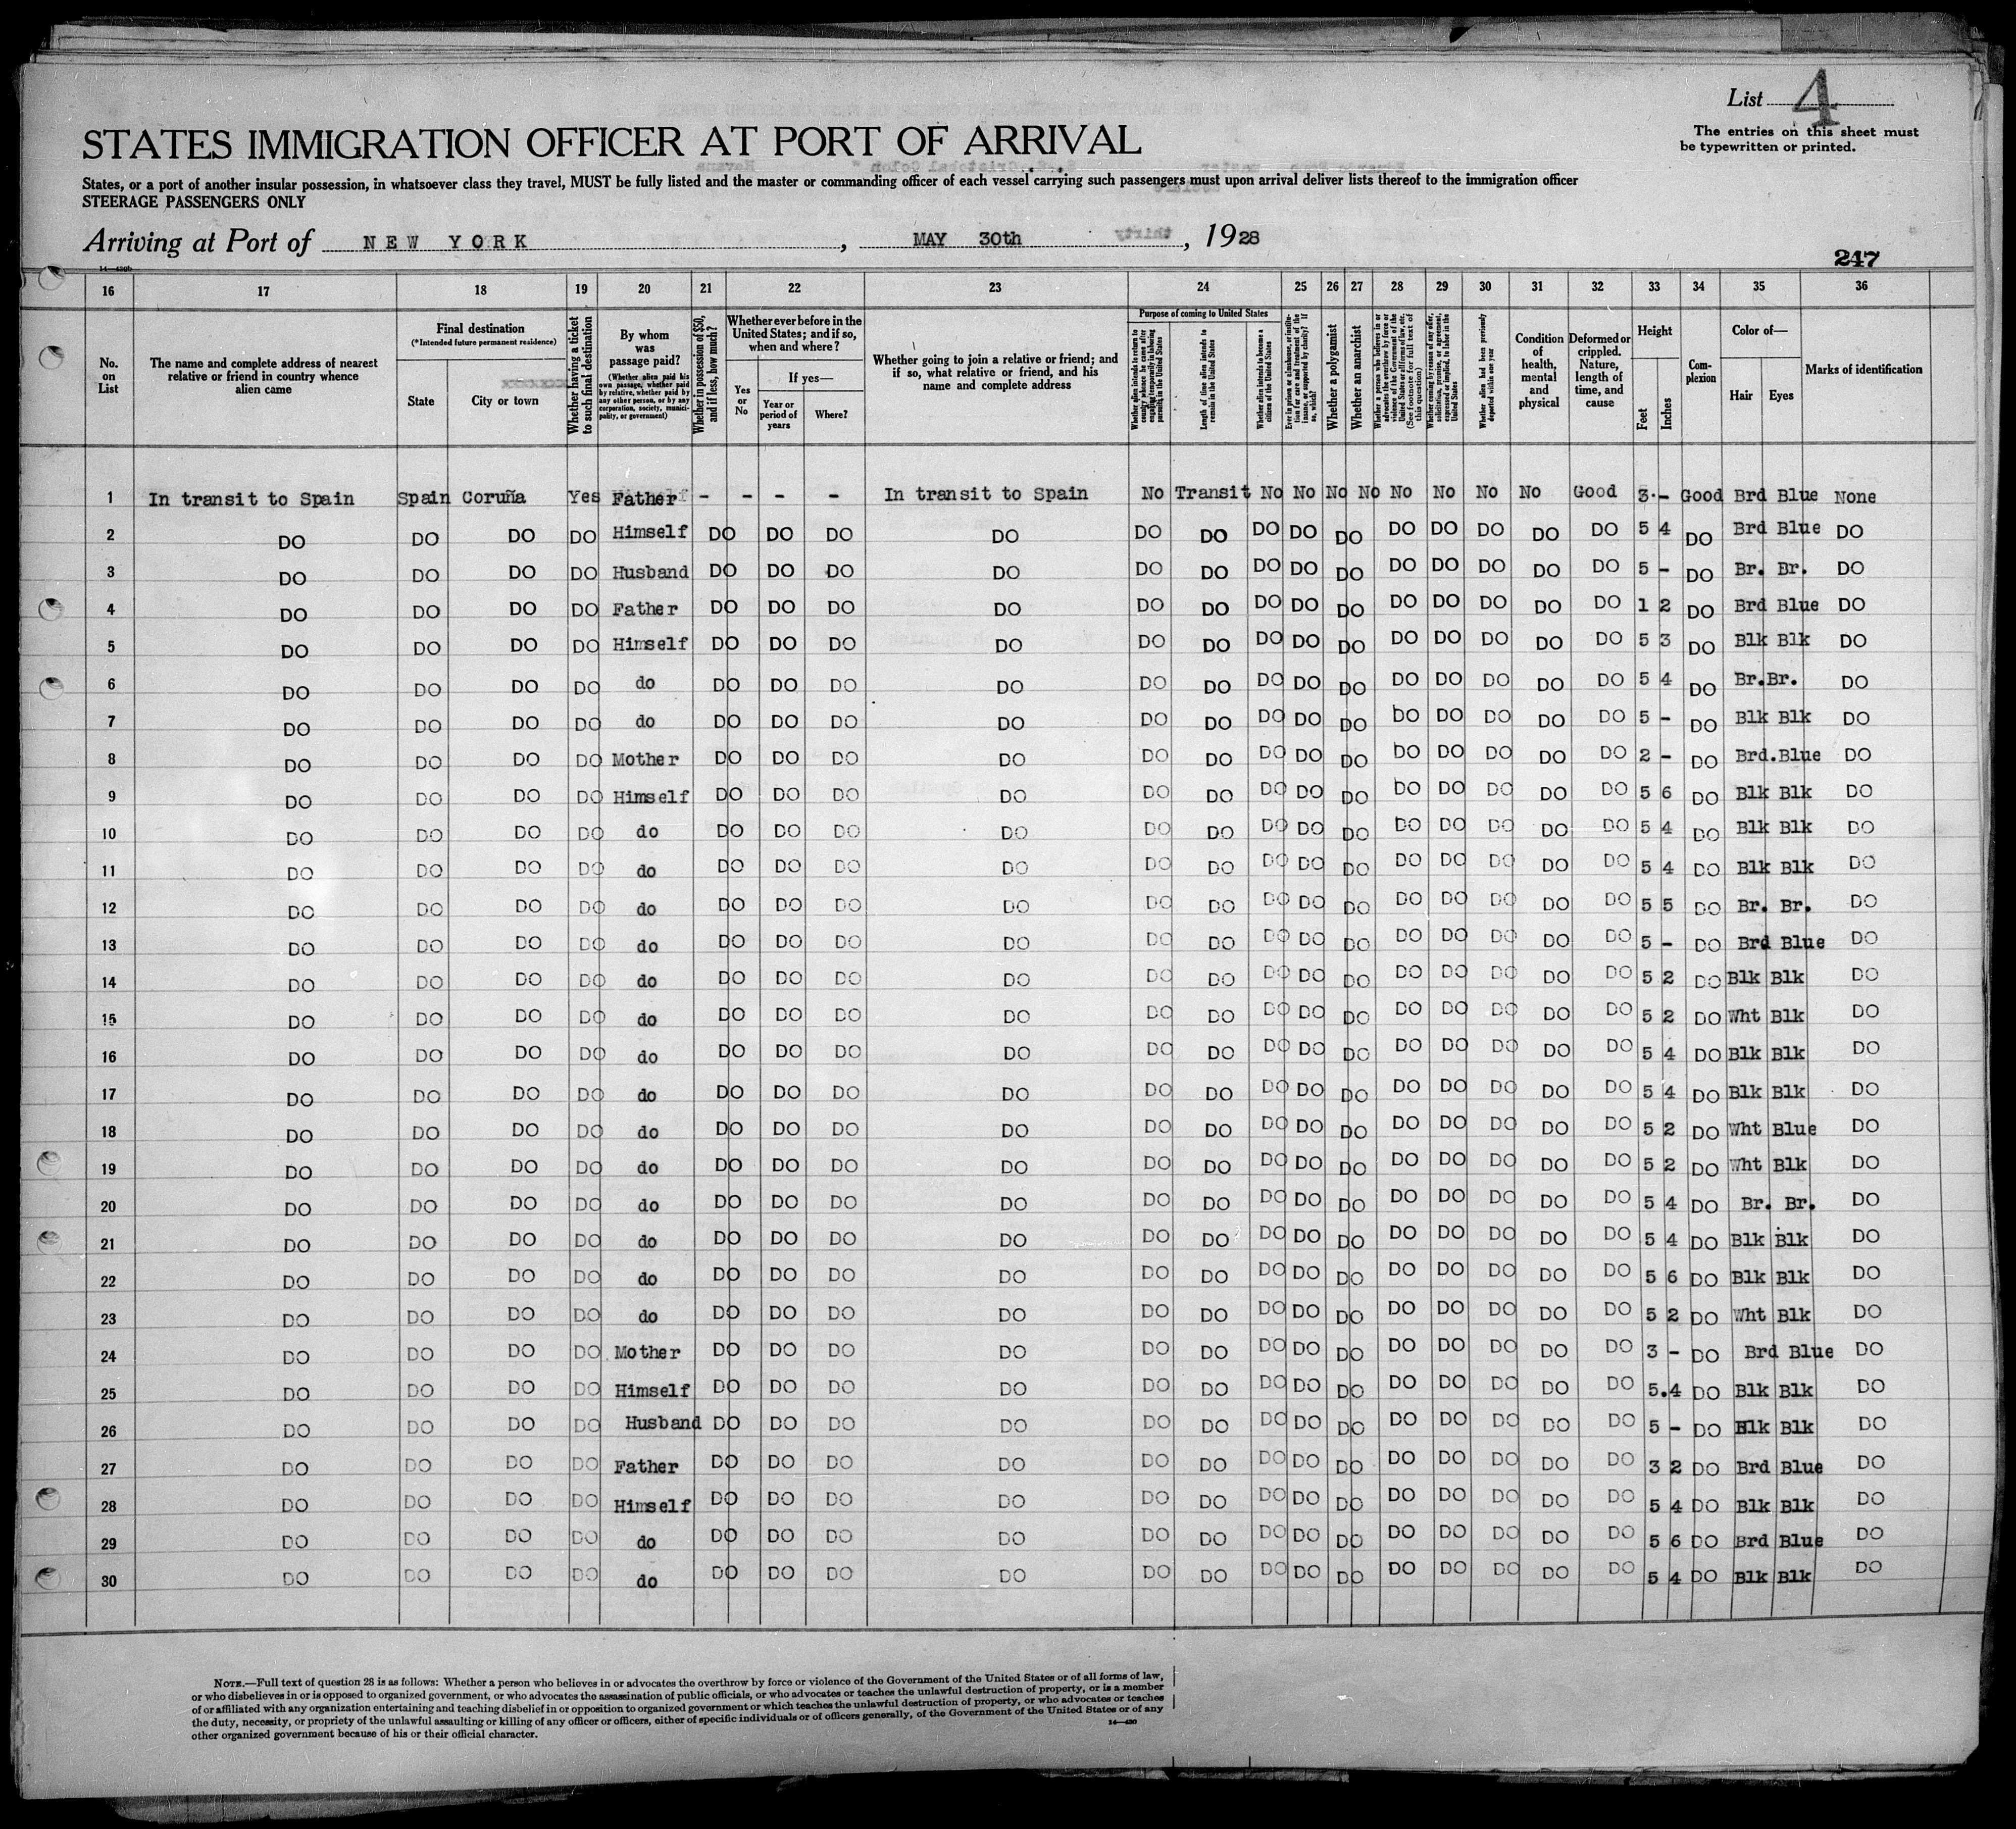 List 4
The entries on this sheet must
be typewritten or printed.
STATES IMMIGRATION OFFICER AT PORT OF ARRIVAL
States, or a port of another insular possession, in whatsoever class they travel, MUST be fully listed and the master or commanding officer of each vessel carrying such passengers must upon arrival deliver lists thereof to the immigration officer
STEERAGE PASSENGERS ONLY
Arriving at Port of NEW YORK, MAY 30th, 1928
247
16 17 18 19 20 21 22 23 24 25 26 27 28 29 30 31 32 33 34 35 36
No. on List
The name and complete address of nearest relative or friend in country whence alien came
Final destination
(*Intended future permanent residence)
State
City or town
Whether having a ticket to such final destination
By whom was passage paid?
(Whether alien paid his own passage, whether paid by relative, whether paid by any other person, or by any corporation, society, municipality, or government)
Whether in possession of $50, and if less, how much?
Whether ever before in the United States; and if so, when and where?
Yes or No
If yes—
Year or period of years
Where?
Whether going to join a relative or friend; and if so, what relative or friend, and his name and complete address
Purpose of coming to United States
Length of time alien intends to remain in the United States
Whether alien intends to become a citizen of the United States
Whether a polygamist
Whether an anarchist
Whether alien had been previously deported within one year
Condition of health, mental and physical
Deformed or crippled. Nature, length of time, and cause
Height
Feet
Inches
Complexion
Color of—
Hair
Eyes
Marks of identification
1 In transit to Spain Spain Coruña Yes Father - - - - In transit to Spain No Transit No No No No No No No No Good 3 - Good Brd Blue None
2 DO DO DO DO Himself DO DO DO DO DO DO DO DO DO DO DO DO DO DO DO 5 4 DO Brd Blue DO
3 DO DO DO DO Husband DO DO DO DO DO DO DO DO DO DO DO DO DO DO DO 5 - DO Br. Br. DO
4 DO DO DO DO Father DO DO DO DO DO DO DO DO DO DO DO DO DO DO DO 1 2 DO Brd Blue DO
5 DO DO DO DO Himself DO DO DO DO DO DO DO DO DO DO DO DO DO DO 5 3 DO Blk Blk DO
6 DO DO DO DO do DO DO DO DO DO DO DO DO DO DO DO DO DO DO 5 4 DO Br. Br. DO
7 DO DO DO DO do DO DO DO DO DO DO DO DO DO DO DO DO DO DO 5 - DO Blk Blk DO
8 DO DO DO DO Mother DO DO DO DO DO DO DO DO DO DO DO DO DO DO 2 - DO Brd. Blue DO
9 DO DO DO DO Himself DO DO DO DO DO DO DO DO DO DO DO DO DO DO 5 6 DO Blk Blk DO
10 DO DO DO DO do DO DO DO DO DO DO DO DO DO DO DO DO DO DO 5 4 DO Blk Blk DO
11 DO DO DO DO do DO DO DO DO DO DO DO DO DO DO DO DO DO DO 5 4 DO Blk Blk DO
12 DO DO DO DO do DO DO DO DO DO DO DO DO DO DO DO DO DO DO 5 5 DO Br. Br. DO
13 DO DO DO DO do DO DO DO DO DO DO DO DO DO DO DO DO DO DO 5 - DO Brd Blue DO
14 DO DO DO DO do DO DO DO DO DO DO DO DO DO DO DO DO DO DO 5 2 DO Blk Blk DO
15 DO DO DO DO do DO DO DO DO DO DO DO DO DO DO DO DO DO DO 5 2 DO Wht Blk DO
16 DO DO DO DO do DO DO DO DO DO DO DO DO DO DO DO DO DO DO 5 4 DO Blk Blk DO
17 DO DO DO DO do DO DO DO DO DO DO DO DO DO DO DO DO DO DO 5 4 DO Blk Blk DO
18 DO DO DO DO do DO DO DO DO DO DO DO DO DO DO DO DO DO DO 5 2 DO Wht Blue DO
19 DO DO DO DO do DO DO DO DO DO DO DO DO DO DO DO DO DO DO 5 2 DO Wht Blk DO
20 DO DO DO DO do DO DO DO DO DO DO DO DO DO DO DO DO DO DO 5 4 DO Br. Br. DO
21 DO DO DO DO do DO DO DO DO DO DO DO DO DO DO DO DO DO DO 5 4 DO Blk Blk DO
22 DO DO DO DO do DO DO DO DO DO DO DO DO DO DO DO DO DO DO 5 6 DO Blk Blk DO
23 DO DO DO DO do DO DO DO DO DO DO DO DO DO DO DO DO DO DO 5 2 DO Wht Blk DO
24 DO DO DO DO Mother DO DO DO DO DO DO DO DO DO DO DO DO DO DO 3 - DO Brd Blue DO
25 DO DO DO DO Himself DO DO DO DO DO DO DO DO DO DO DO DO DO DO 5.4 DO Blk Blk DO
26 DO DO DO DO Husband DO DO DO DO DO DO DO DO DO DO DO DO DO DO 5 - DO Blk Blk DO
27 DO DO DO DO Father DO DO DO DO DO DO DO DO DO DO DO DO DO DO 3 2 DO Brd Blue DO
28 DO DO DO DO Himself DO DO DO DO DO DO DO DO DO DO DO DO DO DO 5 4 DO Blk Blk DO
29 DO DO DO DO do DO DO DO DO DO DO DO DO DO DO DO DO DO DO 5 6 DO Brd Blue DO
30 DO DO DO DO do DO DO DO DO DO DO DO DO DO DO DO DO DO DO 5 4 DO Blk Blk DO
NOTE.—Full text of question 28 is as follows: Whether a person who believes in or advocates the overthrow by force or violence of the Government of the United States or of all forms of law,
or who disbelieves in or is opposed to organized government, or who advocates the assassination of public officials, or who advocates or teaches the unlawful destruction of property, or is a member
of or affiliated with any organization entertaining and teaching disbelief in or opposition to organized government or which teaches the unlawful destruction of property, or who advocates or teaches
the duty, necessity, or propriety of the unlawful assaulting or killing of any officer or officers, either of specific individuals or of officers generally, of the Government of the United States or of any
other organized government because of his or their official character.
14—430